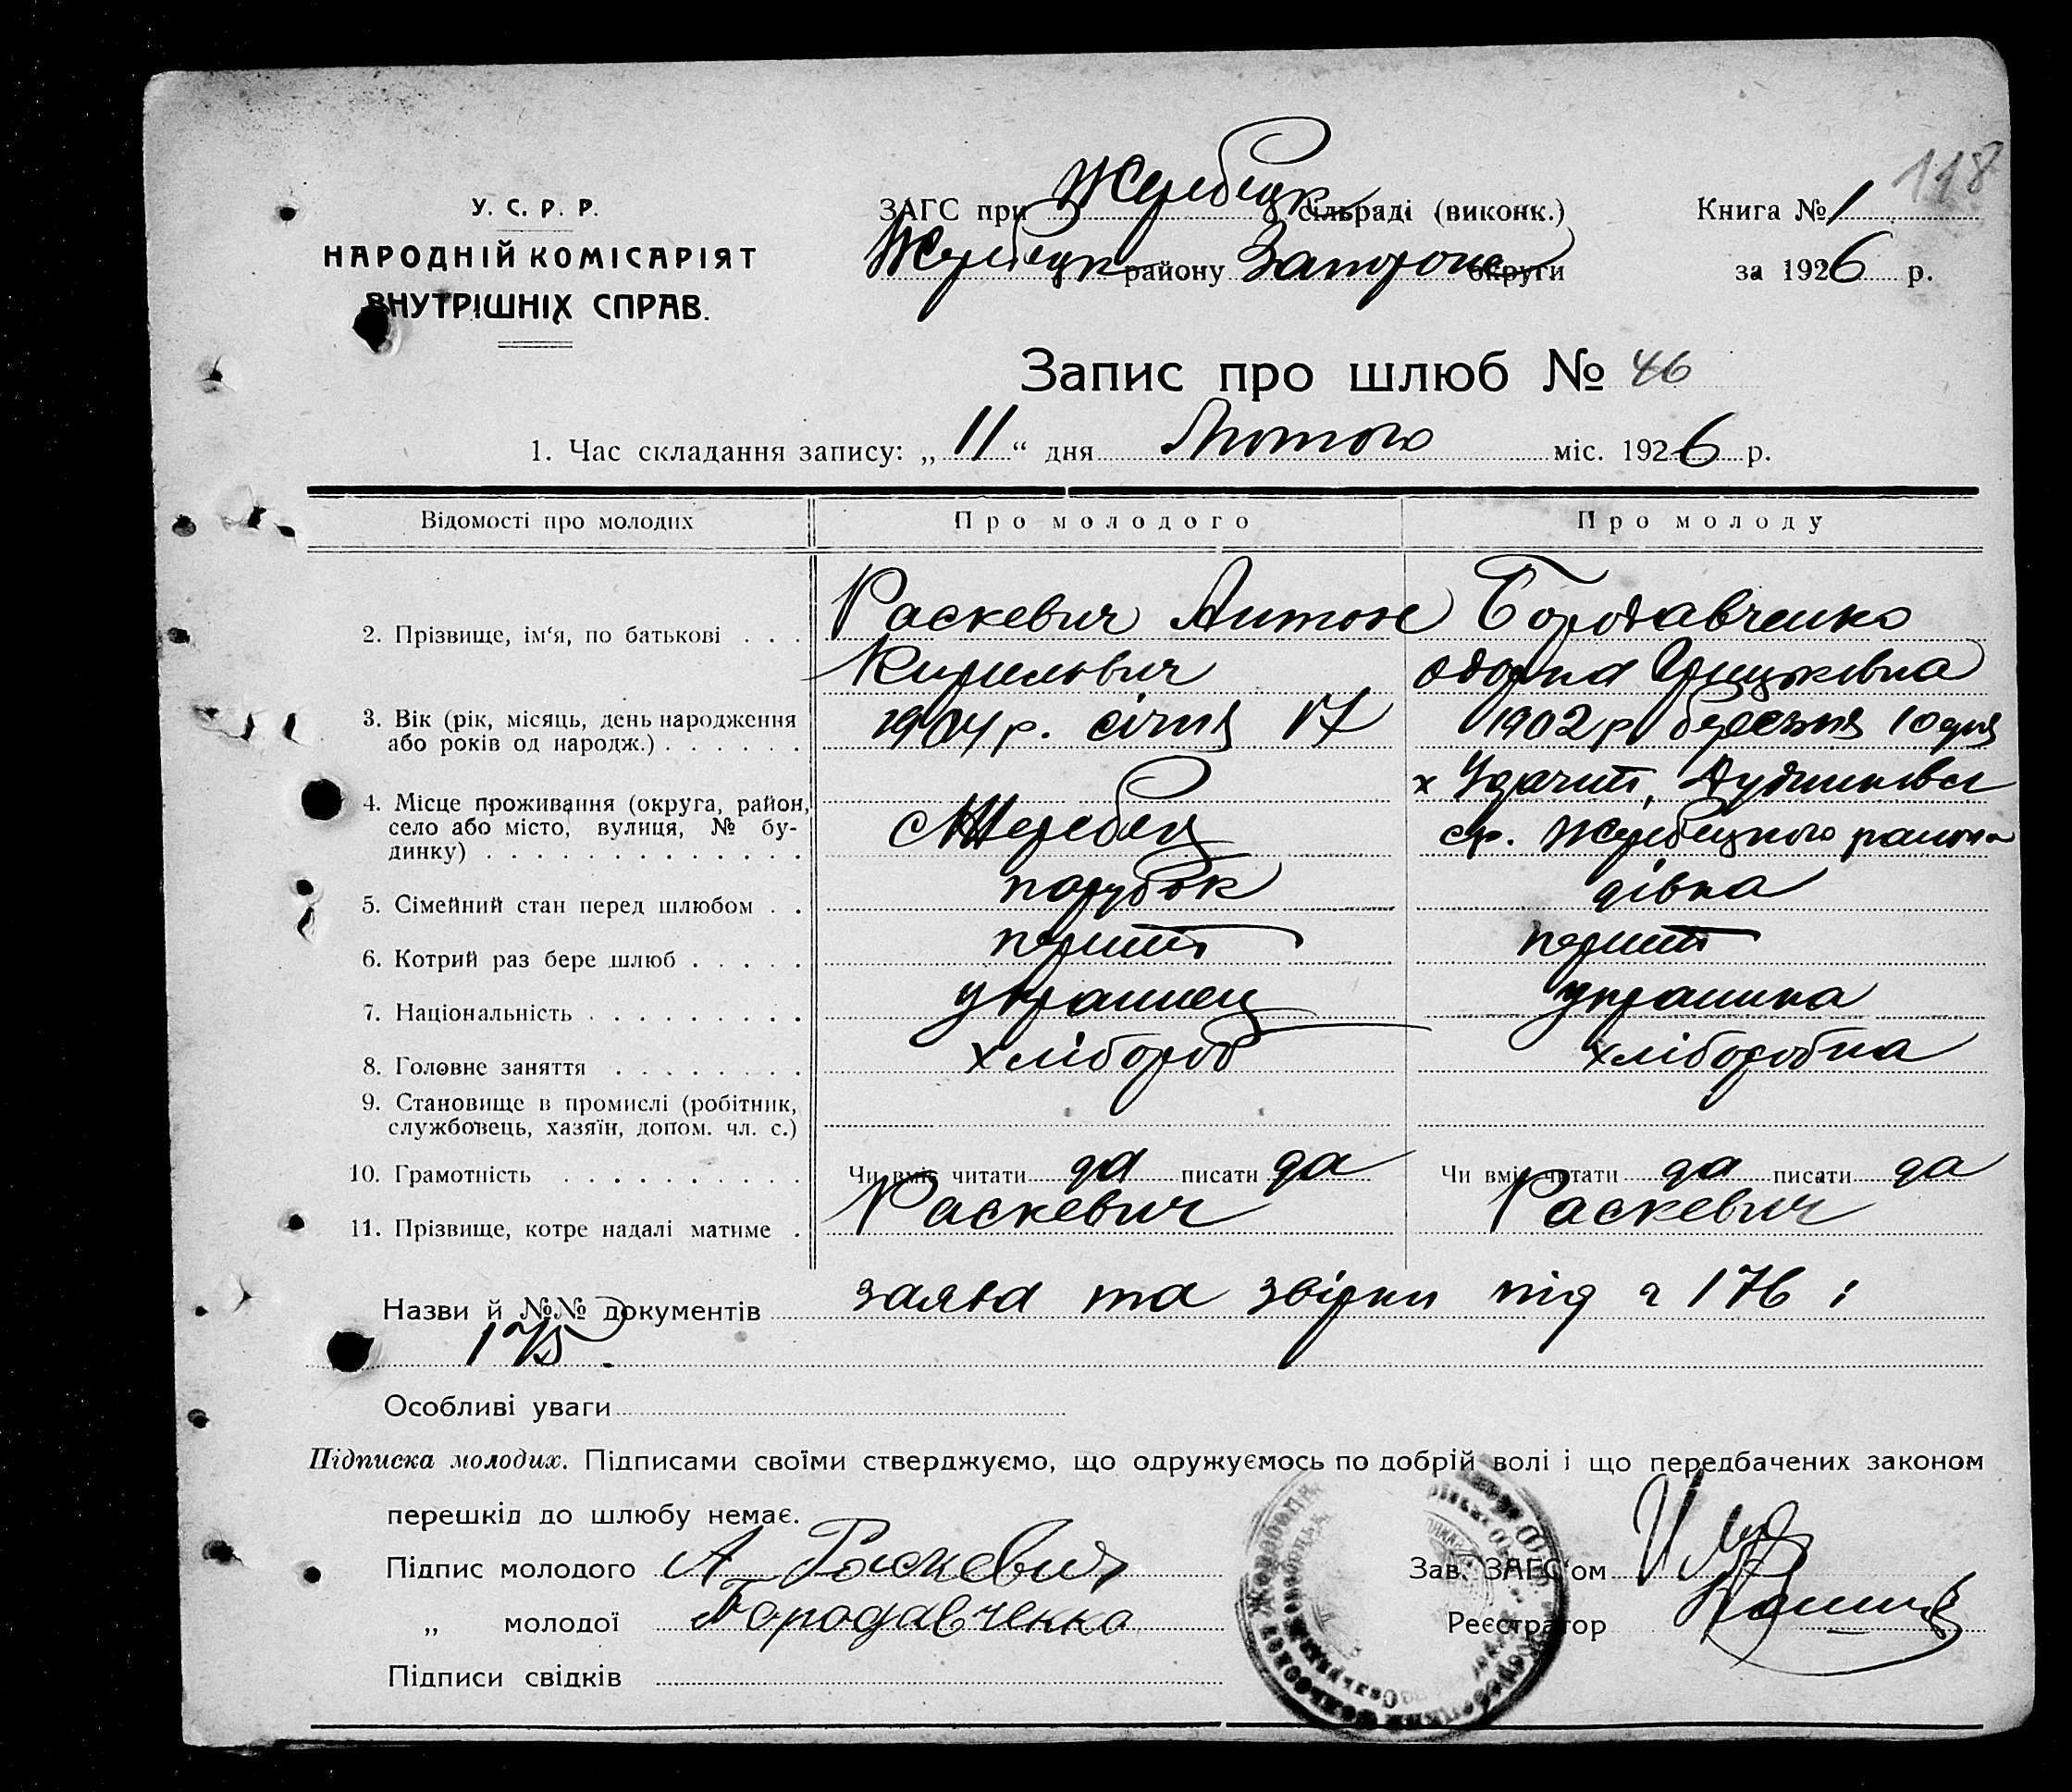 118
У. С. Р. Р.
НАРОДНІЙ КОМІСАРІЯТ
ВНУТРІШНІХ СПРАВ.
ЗАГС при Жеребецк сільраді (виконк.)
Жеребецк району Запорож округи
Книга № 1
за 1926 р.
Запис про шлюб № 46
1. Час складання запису: „11“ дня Лютого міс. 1926 р.
Відомості про молодих
Про молодого
Про молоду
2. Прізвище, ім‘я, по батькові . . .
Раскевич Антон
Кирильвич
Бородавченко
Одарка Грицьківна
3. Вік (рік, місяць, день народження
або років од народж.) . . . . . .
1904 р. січня 17
1902 р березня 10 дня
4. Місце проживання (округа, район,
село або місто, вулиця, № бу-
динку) . . . . . . . . . . . . .
с Жеребец
х Удачний,
ср. Жеребецкого района
5. Сімейний стан перед шлюбом . .
парубок
дівка
6. Котрий раз бере шлюб . . . . .
перший
перший
7. Національність . . . . . . . . .
украинец
украинка
8. Головне заняття . . . . . . . .
хлібороб
хліборобка
9. Становище в промислі (робітник,
службовець, хазяїн, допом. чл. с.)
10. Грамотність . . . . . . . . . .
Чи вміє читати да писати да
Чи вміє читати да писати да
11. Прізвище, котре надалі матиме .
Раскевич
Раскевич
Назви й №№ документів заява та звірки під № 176 і
175.
Особливі уваги
Підписка молодих. Підписами своїми стверджуємо, що одружуємось по добрій волі і що передбачених законом
перешкід до шлюбу немає.
Підпис молодого А Раскевич
„ молодої Бородавченко
Підписи свідків
Зав. ЗАГС‘ом
Реєстратор